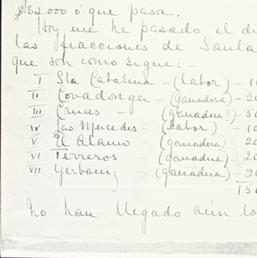 $32.000 ó que pasa.
Hoy me he pasado el di
las fracciones de Santa
que son como sigue:-
I Sta Catalina - (labor) - 10
II Covadonga - (ganadera) - 20
III Cruces - (ganadera?) - 50
IV Las Mercedes - (labor) - 10
V El Alamo - (ganadera) - 20
VI Terreros (ganadera) - 20
VII (ganadera) - 20
150
No han llegado aún lo